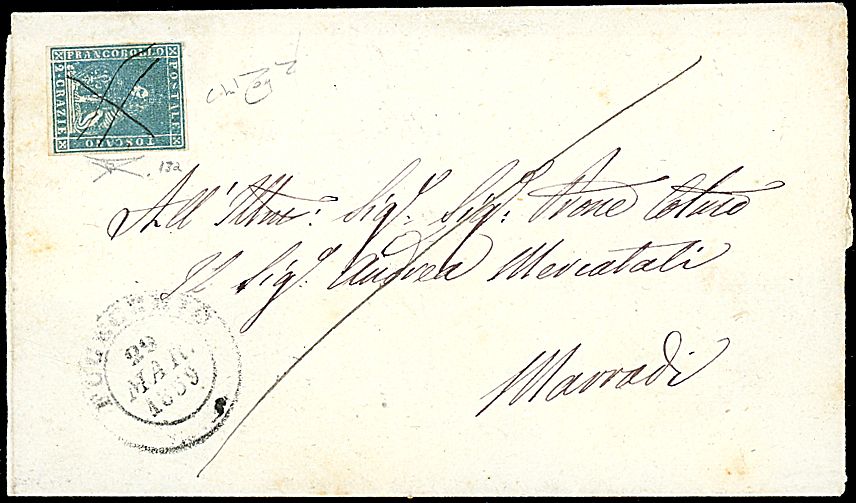 FRANCOBOLLO
POSTALE
TOSCANO
2. CRAZIE
132
All' Illmo: Sigr: Sigr: Prone Colmo
Il Sigr: Andrea Mercatali
Marradi
22
MAR.
1859